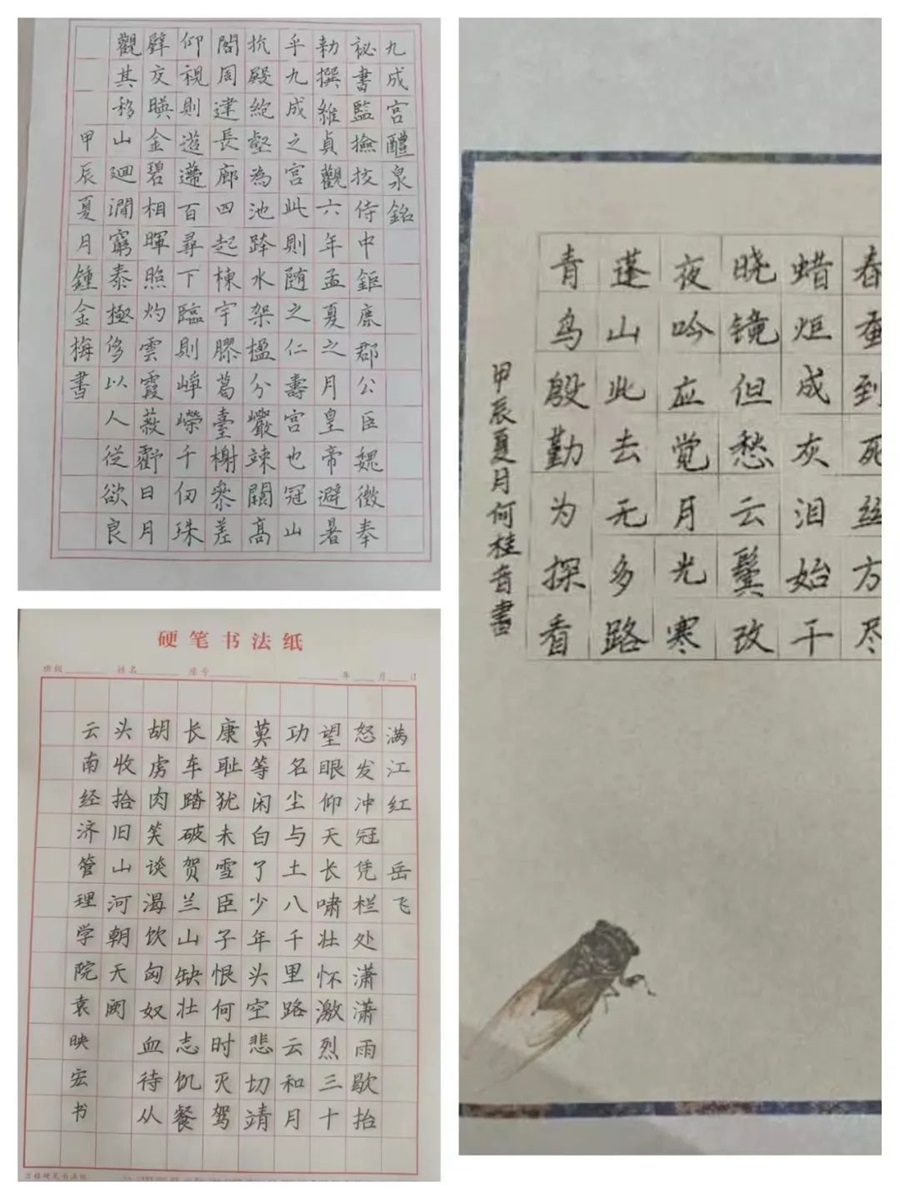 九成宫醴泉銘
秘書監撿挍侍中鉅鹿郡公臣魏徵奉
勑撰維貞觀六年孟夏之月皇帝避暑
乎九成之宫此則随之仁壽宫也冠山
抗殿絶壑為池跨水架楹分巖竦闕髙
閣周建長廊四起棟宇膠葛臺榭叅差
仰視則迢遰百尋下臨則崢嶸千仞珠
壁交暎金碧相暉照灼雲霞蔽虧日月
觀其移山迴澗窮泰極侈以人從欲良
甲辰夏月鍾金梅書
硬笔书法纸
班级 姓名 座号 年 月 日
满江红 岳飞
怒发冲冠凭栏处潇潇雨歇抬
望眼仰天长啸壮怀激烈三十
功名尘与土八千里路云和月
莫等闲白了少年头空悲切靖
康耻犹未雪臣子恨何时灭驾
长车踏破贺兰山缺壮志饥餐
胡虏肉笑谈渴饮匈奴血待从
头收拾旧山河朝天阙
云南经济管理学院袁映宏书
春蚕到死丝方尽
蜡炬成灰泪始干
晓镜但愁云鬓改
夜吟应觉月光寒
蓬山此去无多路
青鸟殷勤为探看
甲辰夏月何桂香書